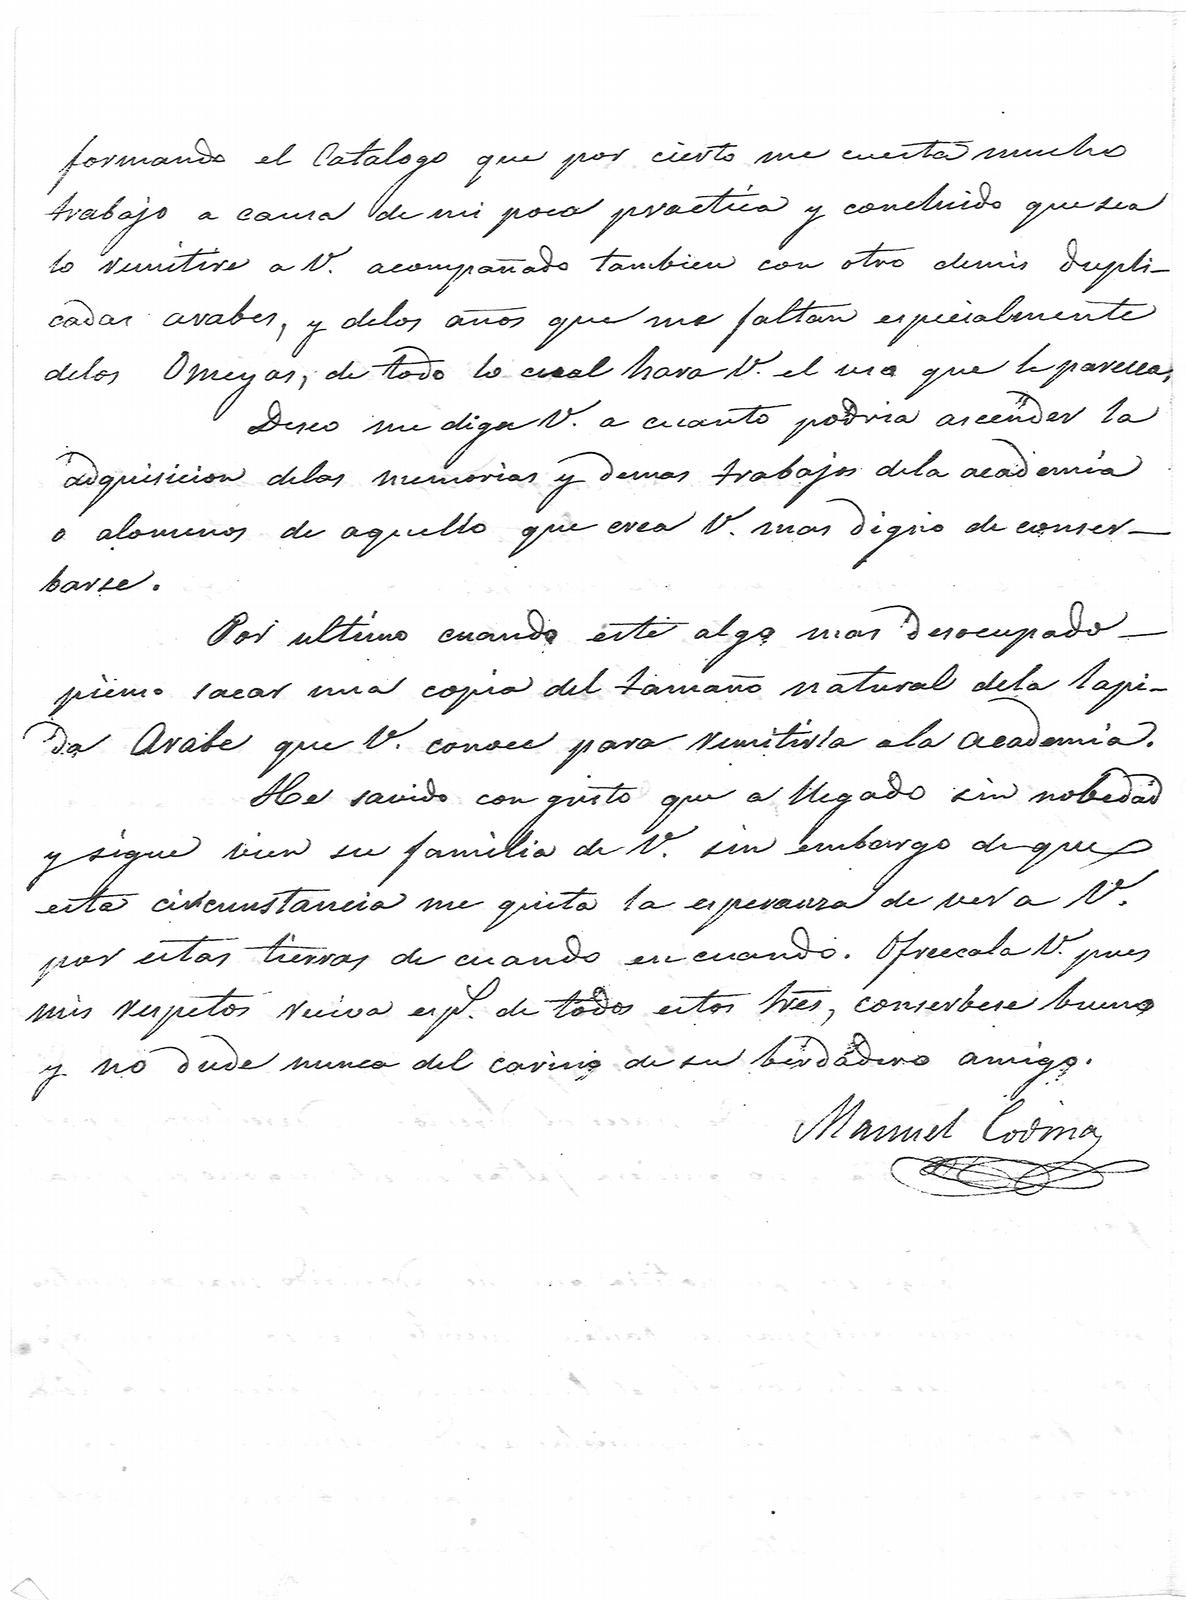 formando el Catalogo que por cierto me cuesta mucho
trabajo a causa de mi poca practica y concluido que sea
lo remitire a V. acompañado tambien con otro demis dupli-
cadas arabes, y delos años que me faltan especialmente
delos Omeyas, de todo lo cual hara V. el uso que le paresca,
Deseo me diga V. a cuanto podria ascender la
adquisicion delas memorias y demas trabajos dela academia
o alomenos de aquello que crea V. mas digno de conser-
barse.
Por ultimo cuando esté algo mas desocupado
pienso sacar una copia del tamaño natural dela lapi-
da Arabe que V. conoce para remitirla ala academia.
He savido con gusto que a llegado sin nobedad
y sigue vien su familia de V. sin embargo de que
esta circunstancia me quita la esperanza de ver a V.
por estas tierras de cuando en cuando. Ofrezcala V. pues
mis respetos reciva espl. de todos estos tres, conserbese bueno
y no dude nunca del cariño de su berdadero amigo.
Manuel Codina